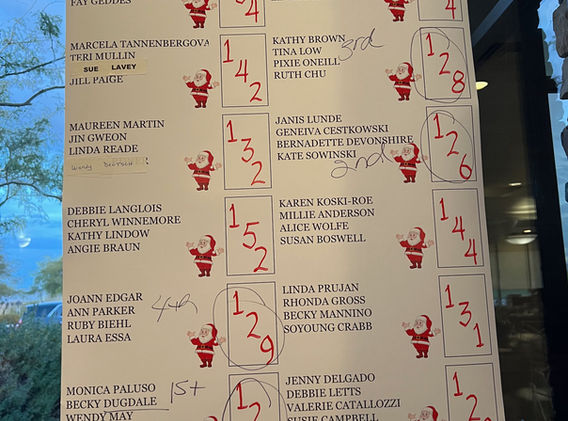 FAY GEDDES
4
4
MARCELA TANNENBERGOVA
TERI MULLIN
SUE LAVEY
JILL PAIGE
142
KATHY BROWN
TINA LOW
PIXIE ONEILL
RUTH CHU
3rd
128
MAUREEN MARTIN
JIN GWEON
LINDA READE
Wendy
132
JANIS LUNDE
GENEIVA CESTKOWSKI
BERNADETTE DEVONSHIRE
KATE SOWINSKI
2nd
126
DEBBIE LANGLOIS
CHERYL WINNEMORE
KATHY LINDOW
ANGIE BRAUN
152
KAREN KOSKI-ROE
MILLIE ANDERSON
ALICE WOLFE
SUSAN BOSWELL
144
JOANN EDGAR
ANN PARKER
RUBY BIEHL
LAURA ESSA
4th
129
LINDA PRUJAN
RHONDA GROSS
BECKY MANNINO
SOYOUNG CRABB
131
MONICA PALUSO
BECKY DUGDALE
WENDY MAY
1st
12
JENNY DELGADO
DEBBIE LETTS
VALERIE CATALLOZZI
SUSIE CAMPBELL
12